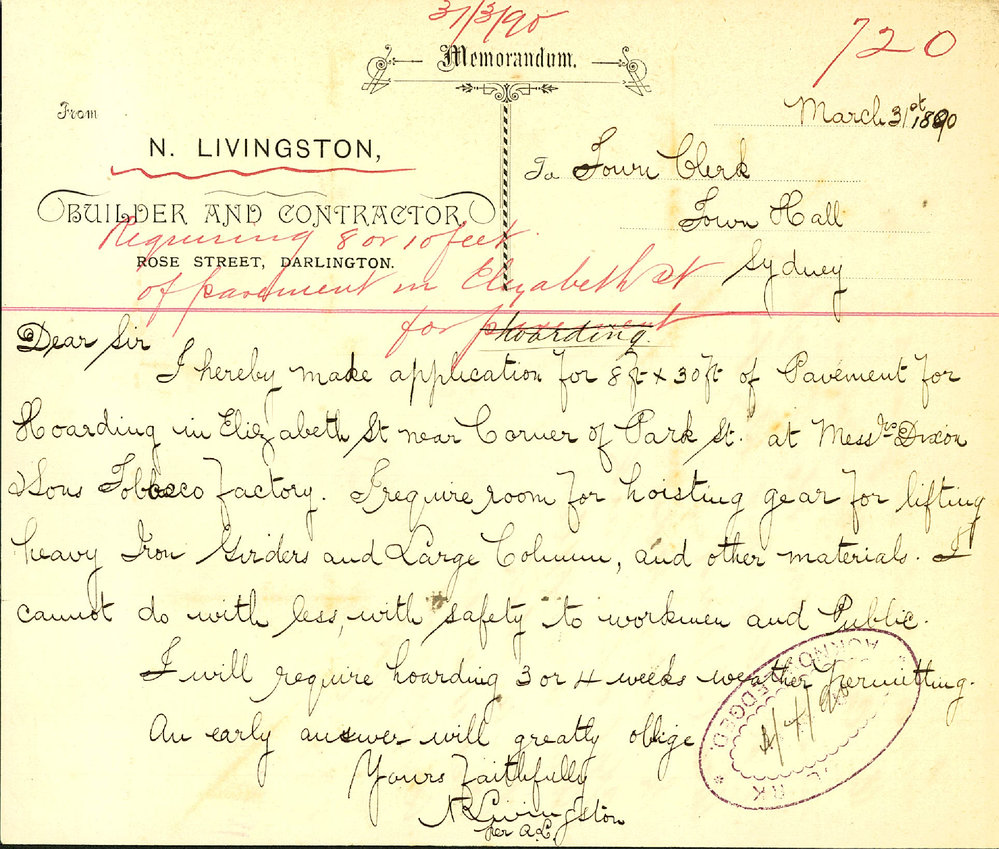 31/3/90
720
Memorandum.
March 31st 1890
From
N. LIVINGSTON,
To Town Clerk
Town Hall
Sydney
BUILDER AND CONTRACTOR,
ROSE STREET, DARLINGTON.
Requiring 8 or 10 feet
of pavement in Elizabeth St
for pavement
hoarding.
Dear Sir
I hereby make application for 8ft x 30ft of Pavement for
Hoarding in Elizabeth St near Corner of Park St. at Messrs Dixon
& Sons Tobbacco Factory. I require room for hoisting gear for lifting
heavy Iron Girders and Large Column, and other materials. I
cannot do with less, with safety to workmen and Public.
I will require hoarding 3 or 4 weeks weather permitting.
An early answer will greatly oblige
Yours Faithfully
N Livingston
per A.L.
ACKNOWLEDGED
/4/90